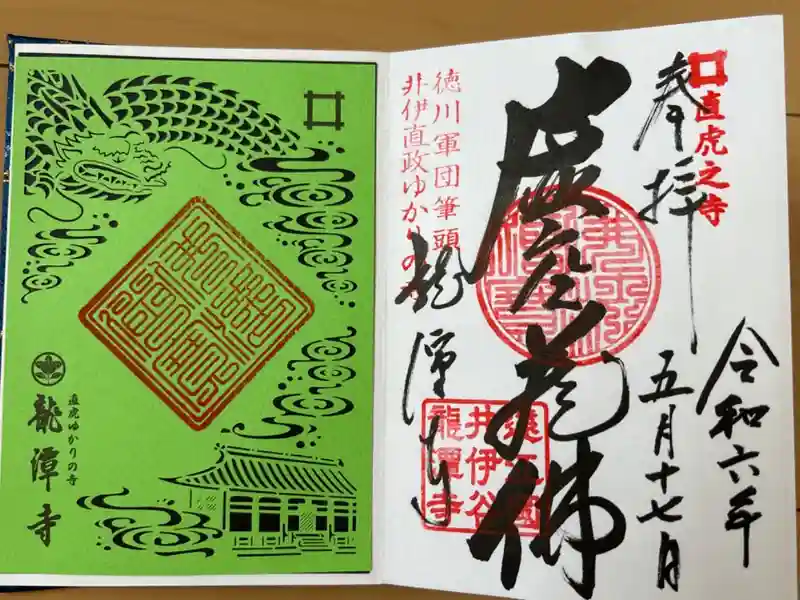 直虎之寺
令和六年
五月十七日
奉拝
虚空蔵佛
徳川軍団筆頭
井伊直政ゆかりの寺
龍潭寺
遠江國
井伊谷
龍潭寺
直虎ゆかりの寺
龍潭寺